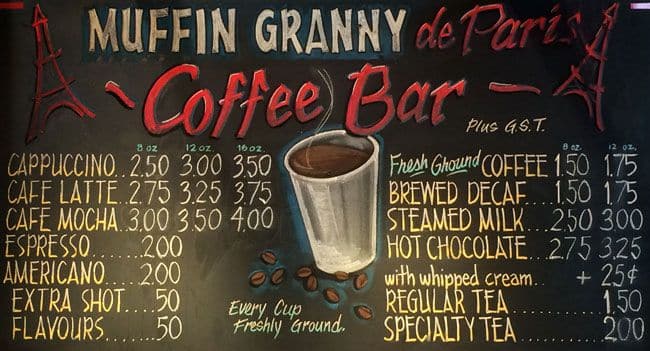 MUFFIN GRANNY de Paris
Coffee Bar
Plus G.S.T.
8 oz. 12 oz. 16 oz.
CAPPUCCINO..2.50 3.00 3.50
CAFE LATTE..2.75 3.25 3.75
CAFE MOCHA..3.00 3.50 4.00
ESPRESSO......2.00
AMERICANO.....2.00
EXTRA SHOT....50
FLAVOURS......50
Every Cup
Freshly Ground.
8 oz. 12 oz.
Fresh Ground COFFEE 1.50 1.75
BREWED DECAF...1.50 1.75
STEAMED MILK....2.50 3.00
HOT CHOCOLATE...2.75 3.25
with whipped cream.. + 25¢
REGULAR TEA...........1.50
SPECIALTY TEA.........2.00